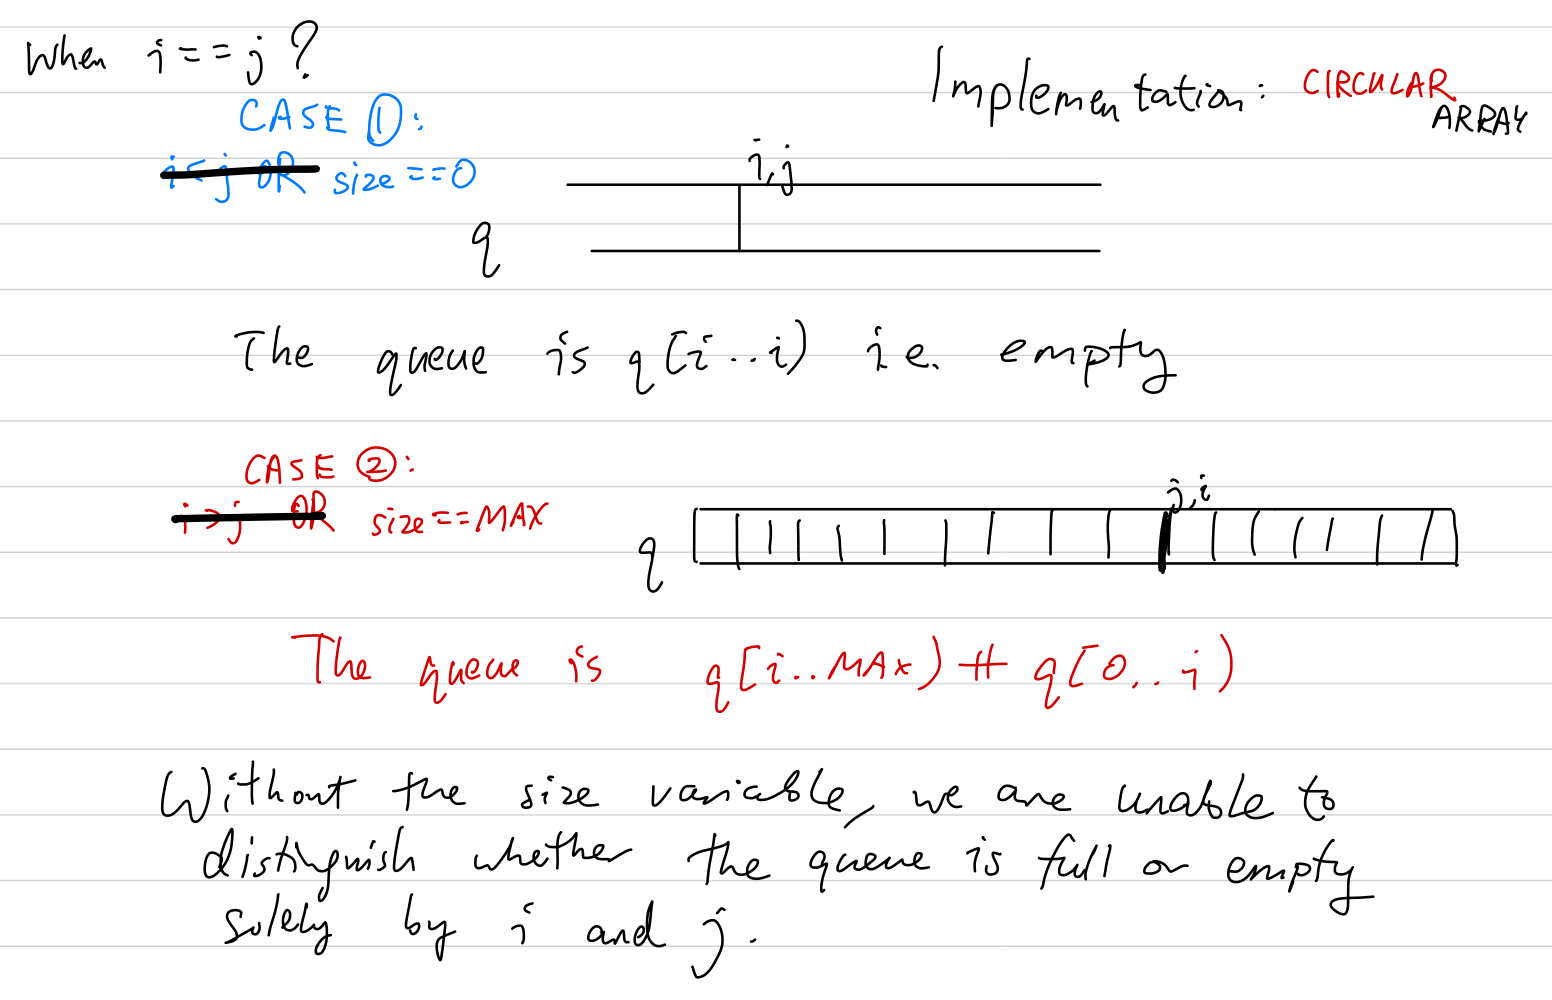 When i==j?
Implementation: CIRCULAR
ARRAY
CASE ①:
i<j OR size==0
i,j
q
The queue is q[i..i) i.e. empty
CASE ②:
i>j OR size==MAX
j,i
q
The queue is q[i..MAX) ++ q[0..i)
Without the size variable, we are unable to
distinguish whether the queue is full or empty
solely by i and j.